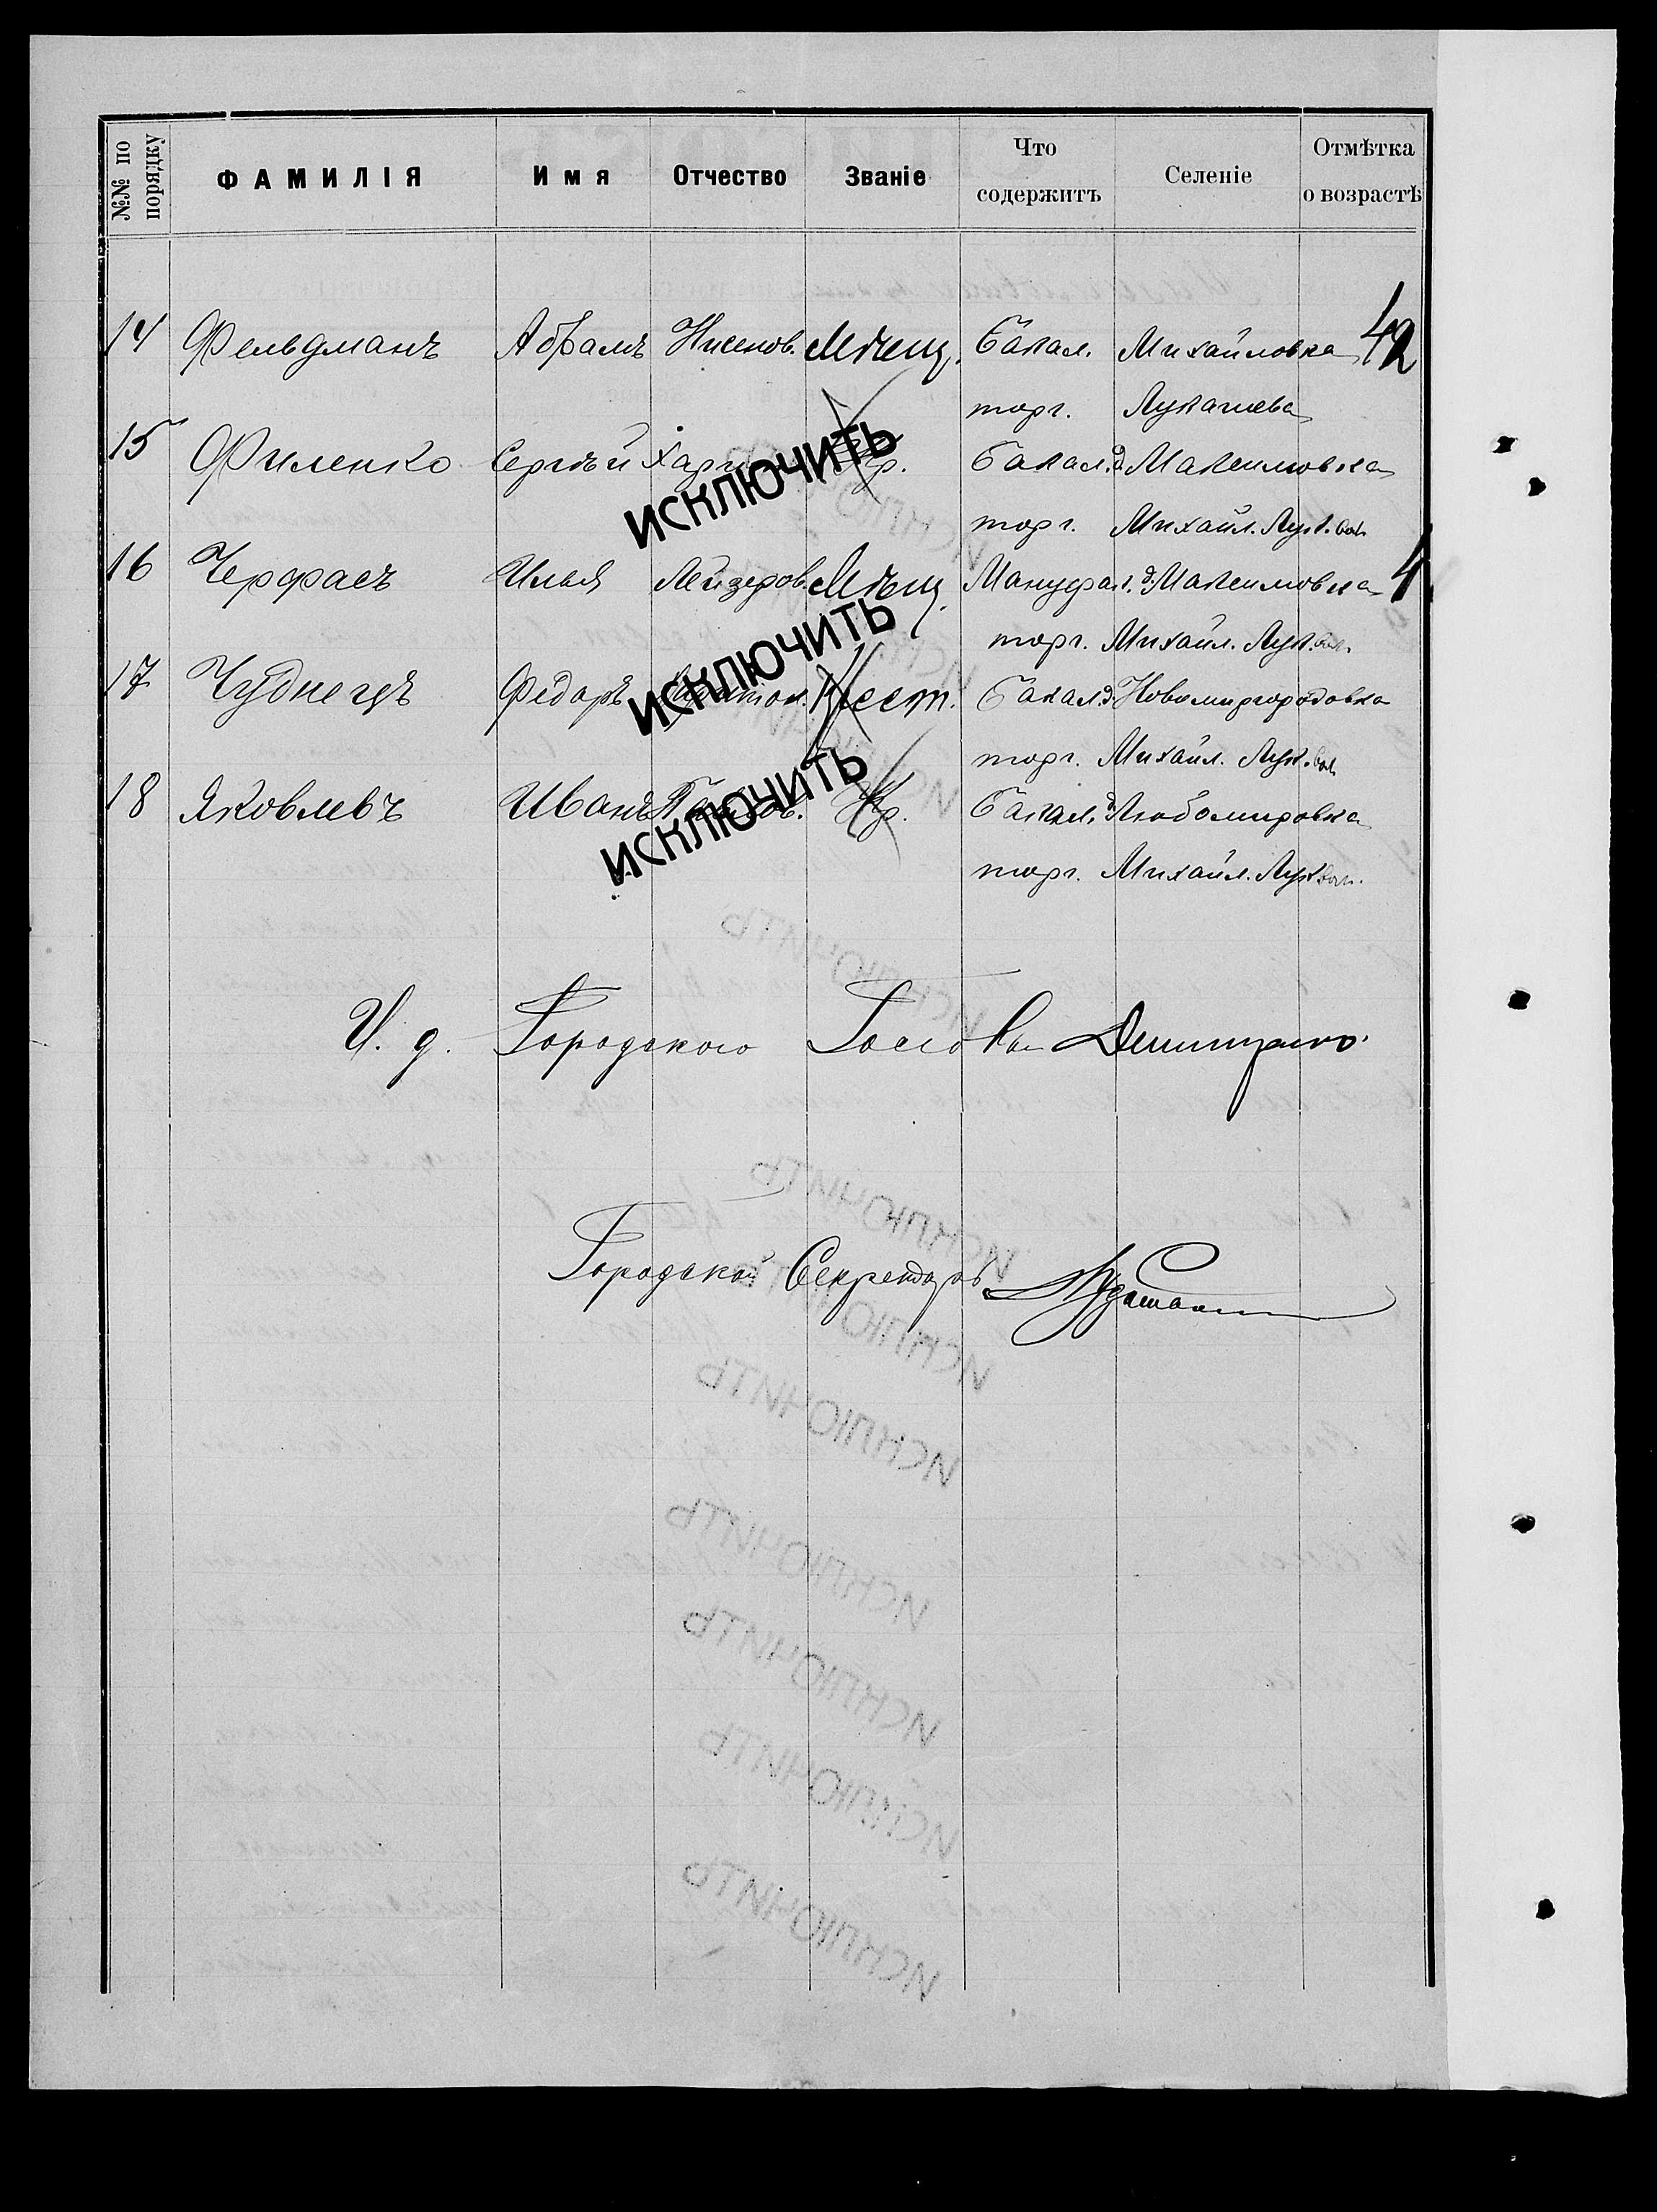 №№ по порядку ФАМИЛІЯ Имя Отчество Званіе Что содержитъ Селеніе Отмѣтка о возрастѣ
14 Фельдманъ Абрамъ Нисенов. Мѣщ. Бакал. Михайловка 42
торг. Лукашева
15 Филенко Сергѣй Хари Кр. Бакал. д. Максимовка
ИСКЛЮЧИТЬ
торг. Михайл. Лук. вол.
16 Черфасъ Илья Лейзеров. Мѣщ. Мануфак. д. Максимовка 4
ИСКЛЮЧИТЬ
торг. Михайл. Лук. вол.
17 Чуднецъ Федоръ Крест. Бакал. д. Новомиргородовка
торг. Михайл. Лук. вол.
ИСКЛЮЧИТЬ
18 Яковлевъ Иванъ Кр. Бакал. д. Любомировка
торг. Михайл. Лук. вол.
И. д. Городского
Городской Секретарь